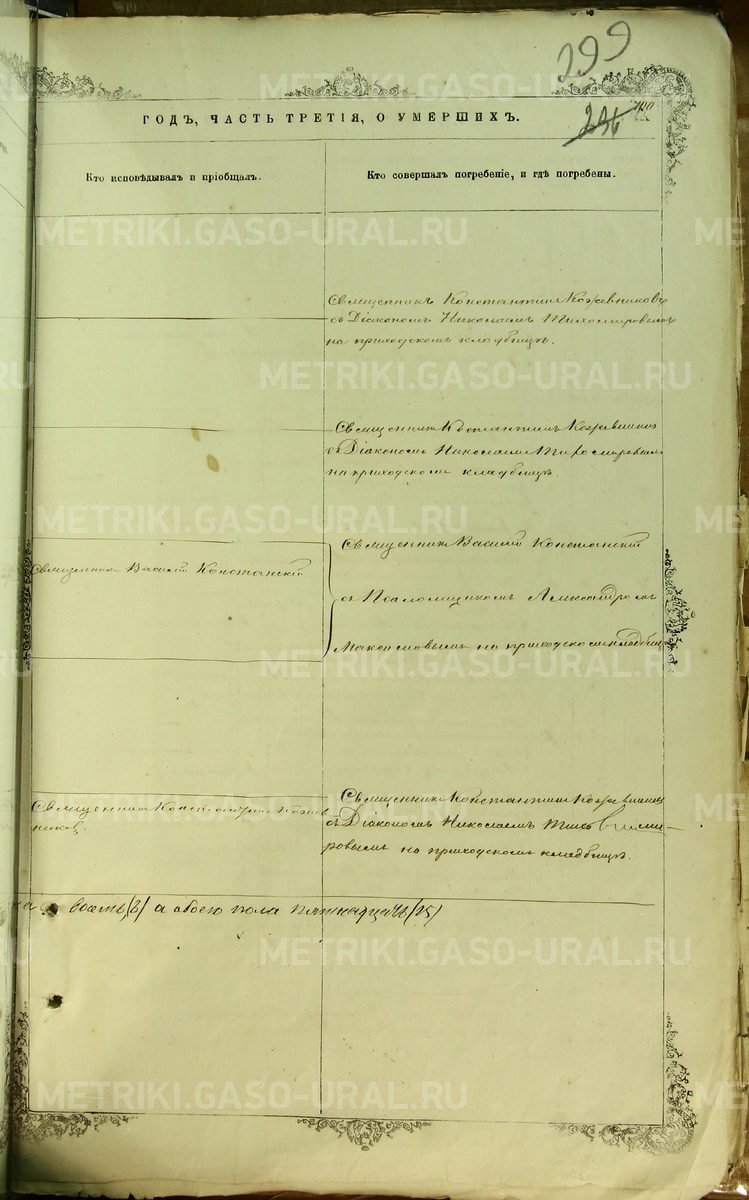 299
ГОДЪ, ЧАСТЬ ТРЕТІЯ, О УМЕРШИХЪ.
Кто исповѣдывалъ и пріобщалъ.
Кто совершалъ погребеніе, и гдѣ погребены.
Священникъ Константинъ Кожевниковъ
съ Діакономъ Николаемъ Тихомировымъ
на приходскомъ кладбищѣ.
Священникъ Константинъ Кожевников
съ Діакономъ Николаемъ Тихомировымъ
на приходскомъ кладбищѣ.
Священникъ Василій Констанскій
Священникъ Василій Констанскій
съ Псаломщикомъ Александромъ
Максимовымъ на приходскомъ кладбищ
Священникъ Константинъ Кожев
никовъ.
Священникъ Константинъ Кожевников
съ Діакономъ Николаемъ Тихо
ровымъ на приходскомъ кладбищѣ.
восемь (8) а обоего пола пятнадцать (15)
METRIKI.GASO-URAL.RU
METRIKI.GASO-URAL.RU
METRIKI.GASO-URAL.RU
METRIKI.GASO-URAL.RU
METRIKI.GASO-URAL.RU
METRIKI.GASO-URAL.RU
METRIKI.GASO-URAL.RU
METRIKI.GASO-URAL.RU